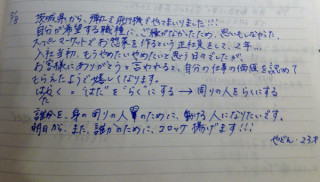 3/8
茨城県から、郷にて飛行機でやってまいりました!!!
自分が希望する職種に、ご縁がなかったため、思いもしなかった、
スーパーマーケットでお惣菜を作るという正社員として、2年…
入社当初、もうやめたいやめたいと思う日々でしたが、
お客様にありがとうと言われると、自分の仕事の価値を認めて
もらえたようで嬉しくなります。
はたらく = "はた"を"らく"にする → 周りの人をらくにする
誰かを、身の周りの人のために、働ける人になりたいです。
明日から、また、誰かのために、コロッケ揚げます!!!
やどん・23才